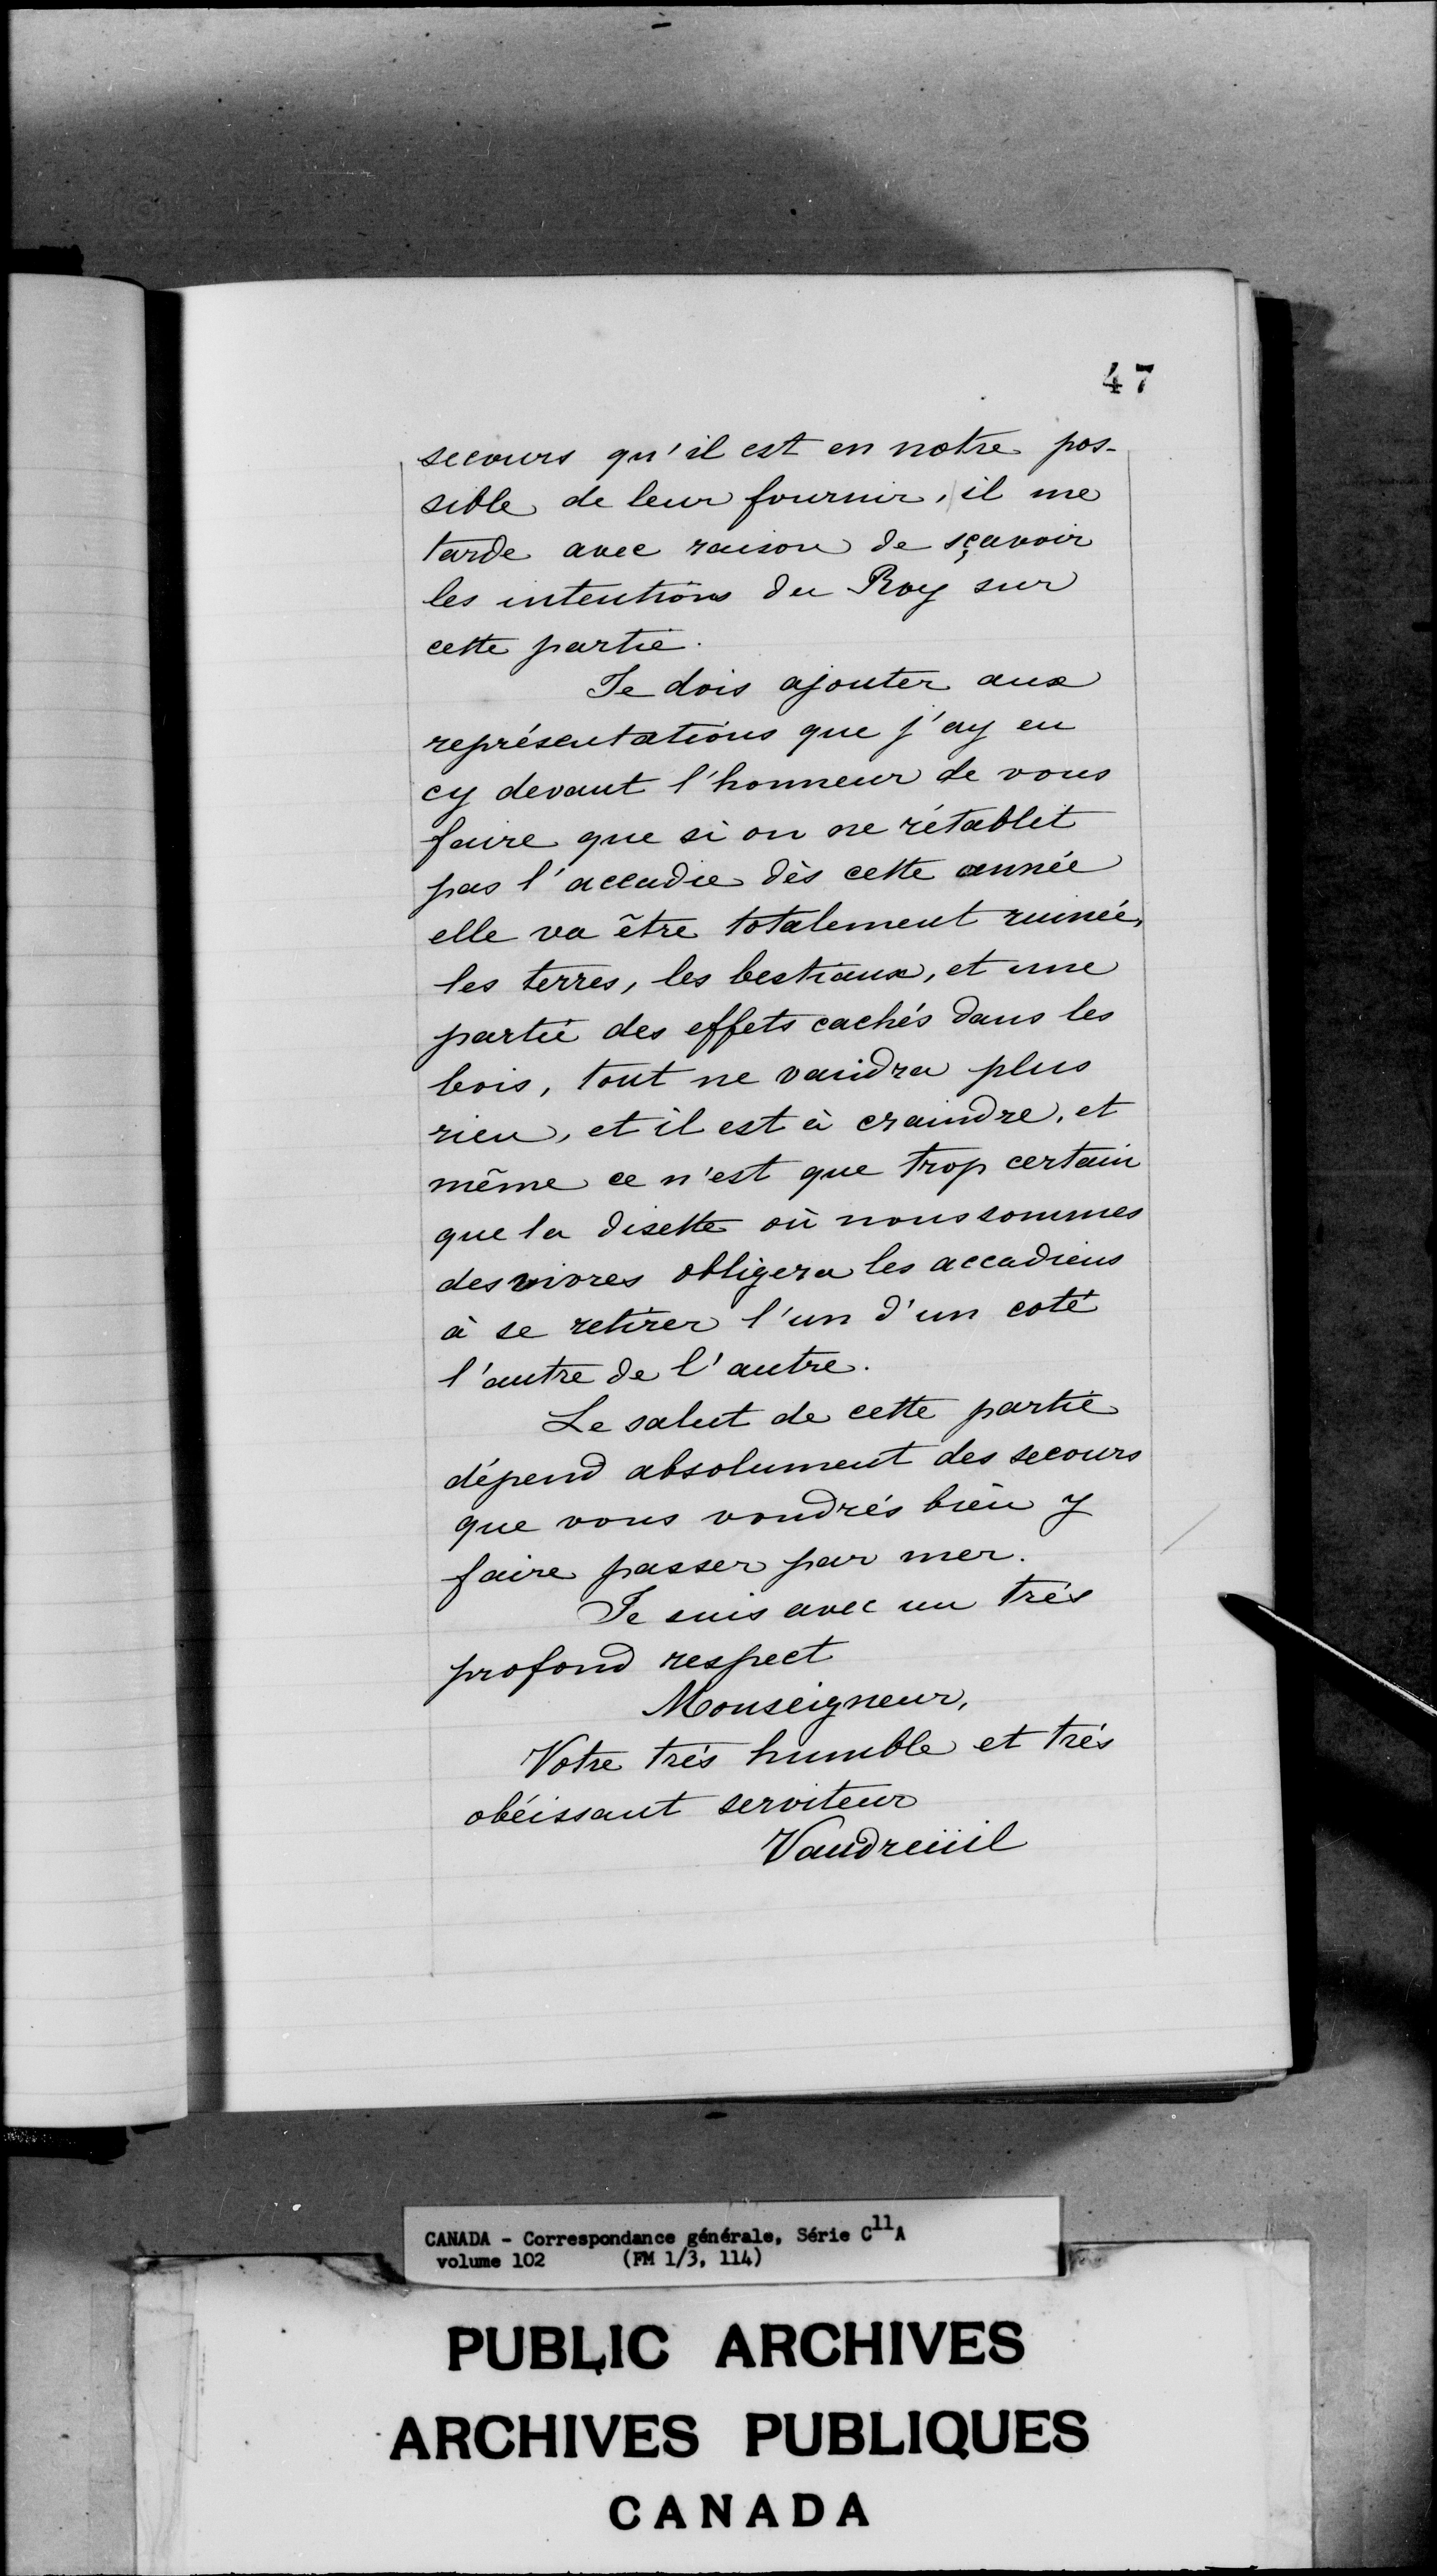 47
secours qu'il est en notre pos-
sible de leur fournir, il me
tarde avec raison de sçavoir
les intentions du Roy sur
cette partie.
Je dois ajouter aux
représentations que j'ay eu
cy devant l'honneur de vous
faire que si on ne rétablit
pas l'accadie dès cette année
elle va être totalement ruinée,
les terres, les bestiaux, et une
partie des effets cachés dans les
bois, tout ne vaudra plus
rien, et il est à craindre, et
même ce n'est que trop certain
que la disette où nous sommes
des vivres obligera les accadiens
à se retirer l'un d'un coté
l'autre de l'autre.
Le salut de cette partie
dépend absolument des secours
que vous voudrés bien y
faire passer par mer.
Je suis avec un très
profond respect
Monseigneur,
Votre très humble et très
obéissant serviteur
Vaudreüil
CANADA - Correspondance générale, Série C11A
volume 102 (FM 1/3, 114)
PUBLIC ARCHIVES
ARCHIVES PUBLIQUES
CANADA